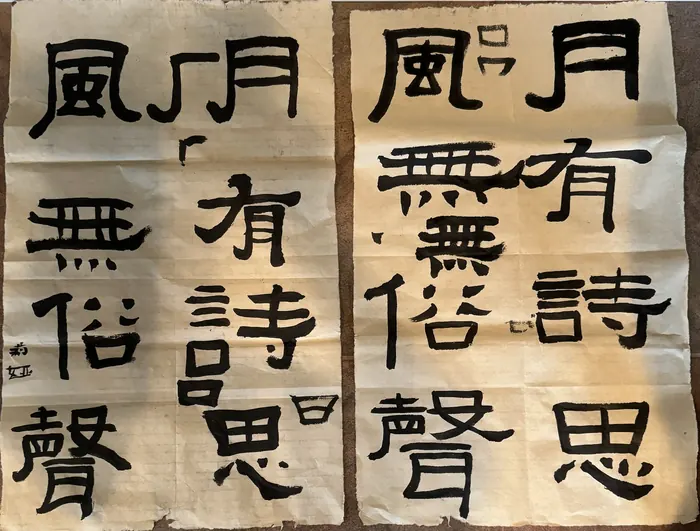 月有詩思
風無無俗聲
月有詩思
風無俗聲